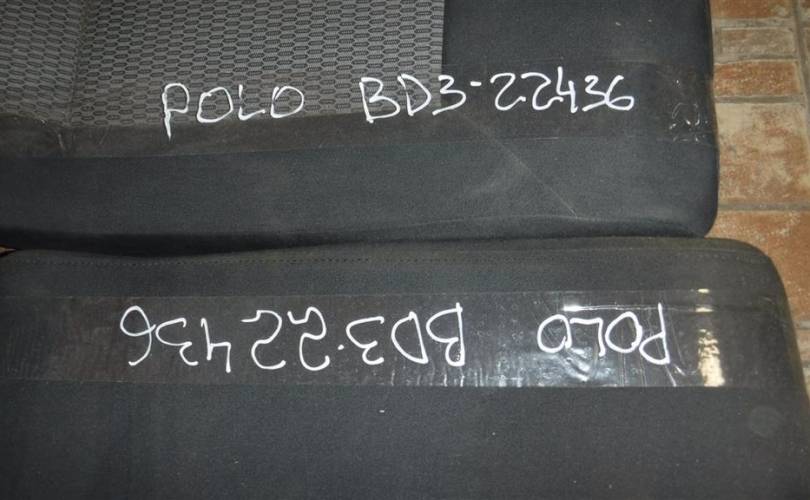 POLO BD3-22436
POLO BD3-22436